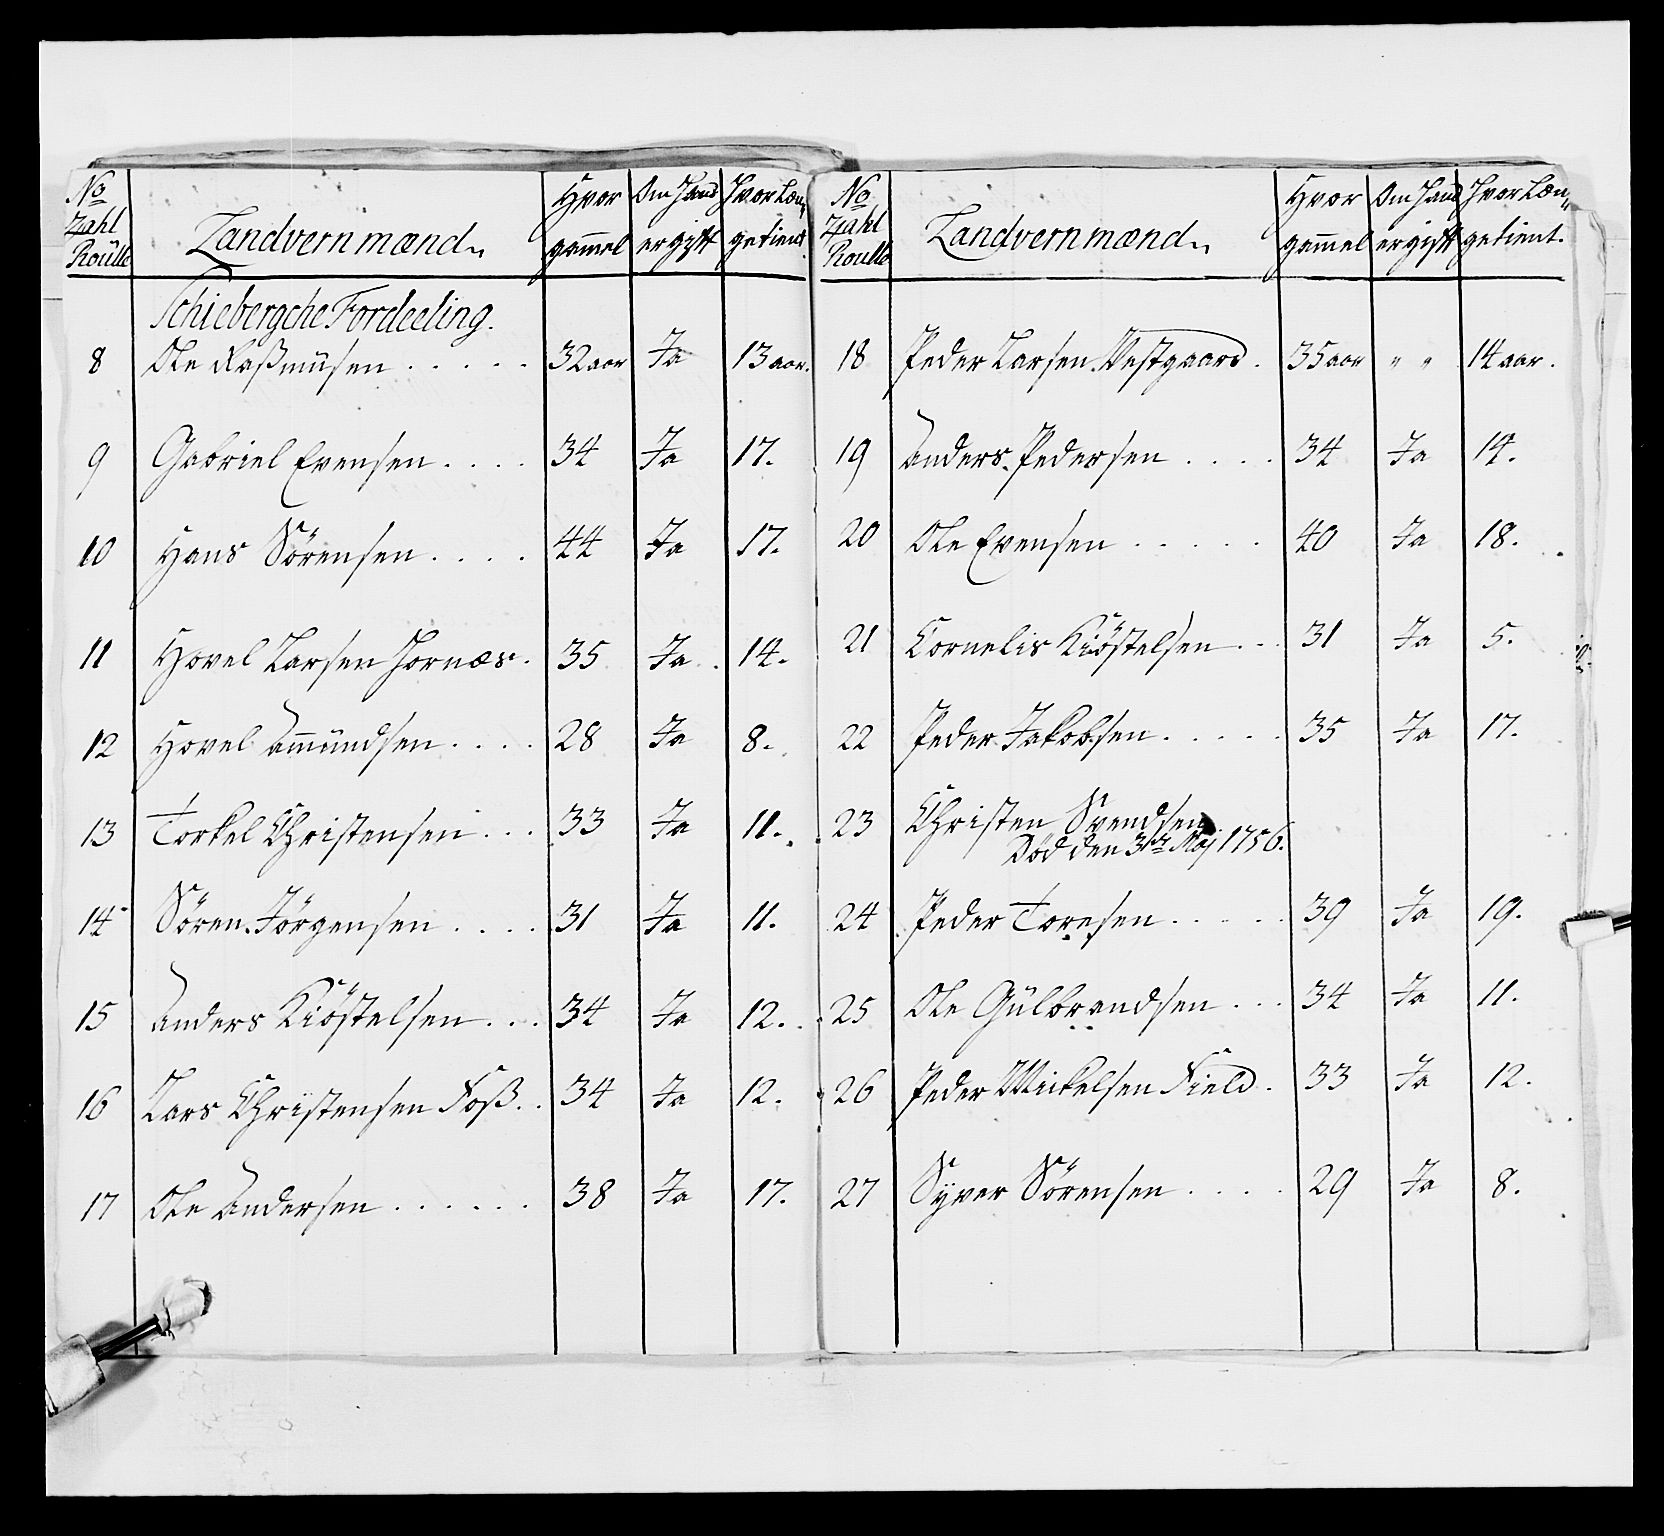 No Zahl Roülle | Landvernmænd | Hvor gam̄el | Om Hand er gift | Hvor Læn„ getient.
Schiebergche Fordeeling.
8 Ole Raßmüsen . . . . . 32 aar Ja 13 aar.
9 Gabriel Evensen . . . . 34 Ja 17.
10 Hans Sörensen . . . . 44 Ja 17.
11 Hovel Larsen Hornæs . 35 Ja 14.
12 Hovel Am̄ündsen . . . . 28 Ja 8.
13 Torkel Christensen . . . 33 Ja 11.
14 Sören Jörgensen . . . . 31 Ja 11.
15 Anders Kiöstelsen . . . 34 Ja 12.
16 Lars Christensen Foß . . 34 Ja 12.
17 Ole Andersen . . . . . . 38 Ja 17.
No Zahl Roulle | Landvernmænd | Hvor gam̄el | Om Hand er gift | Hvor Læn„ getient.
18 Peder Larsen Vestgaard . 35 aar „ „ 14 aar.
19 Anders Pedersen . . . . 34 Ja 14.
20 Ole Evensen . . . . . 40 Ja 18.
21 Cornelis Kiöstelsen . . 31 Ja 5.
22 Peder Jakobsen . . . . . 35 Ja 17.
23 Christen Svendsen
Död den 3die Maj 1756.
24 Peder Toresen . . . . . 39 Ja 19.
25 Ole Gülbrandsen . . . 34 Ja 11.
26 Peder Mickelsen Field . 33 Ja 12.
27 Syver Sörensen . . . . 29 Ja 8.